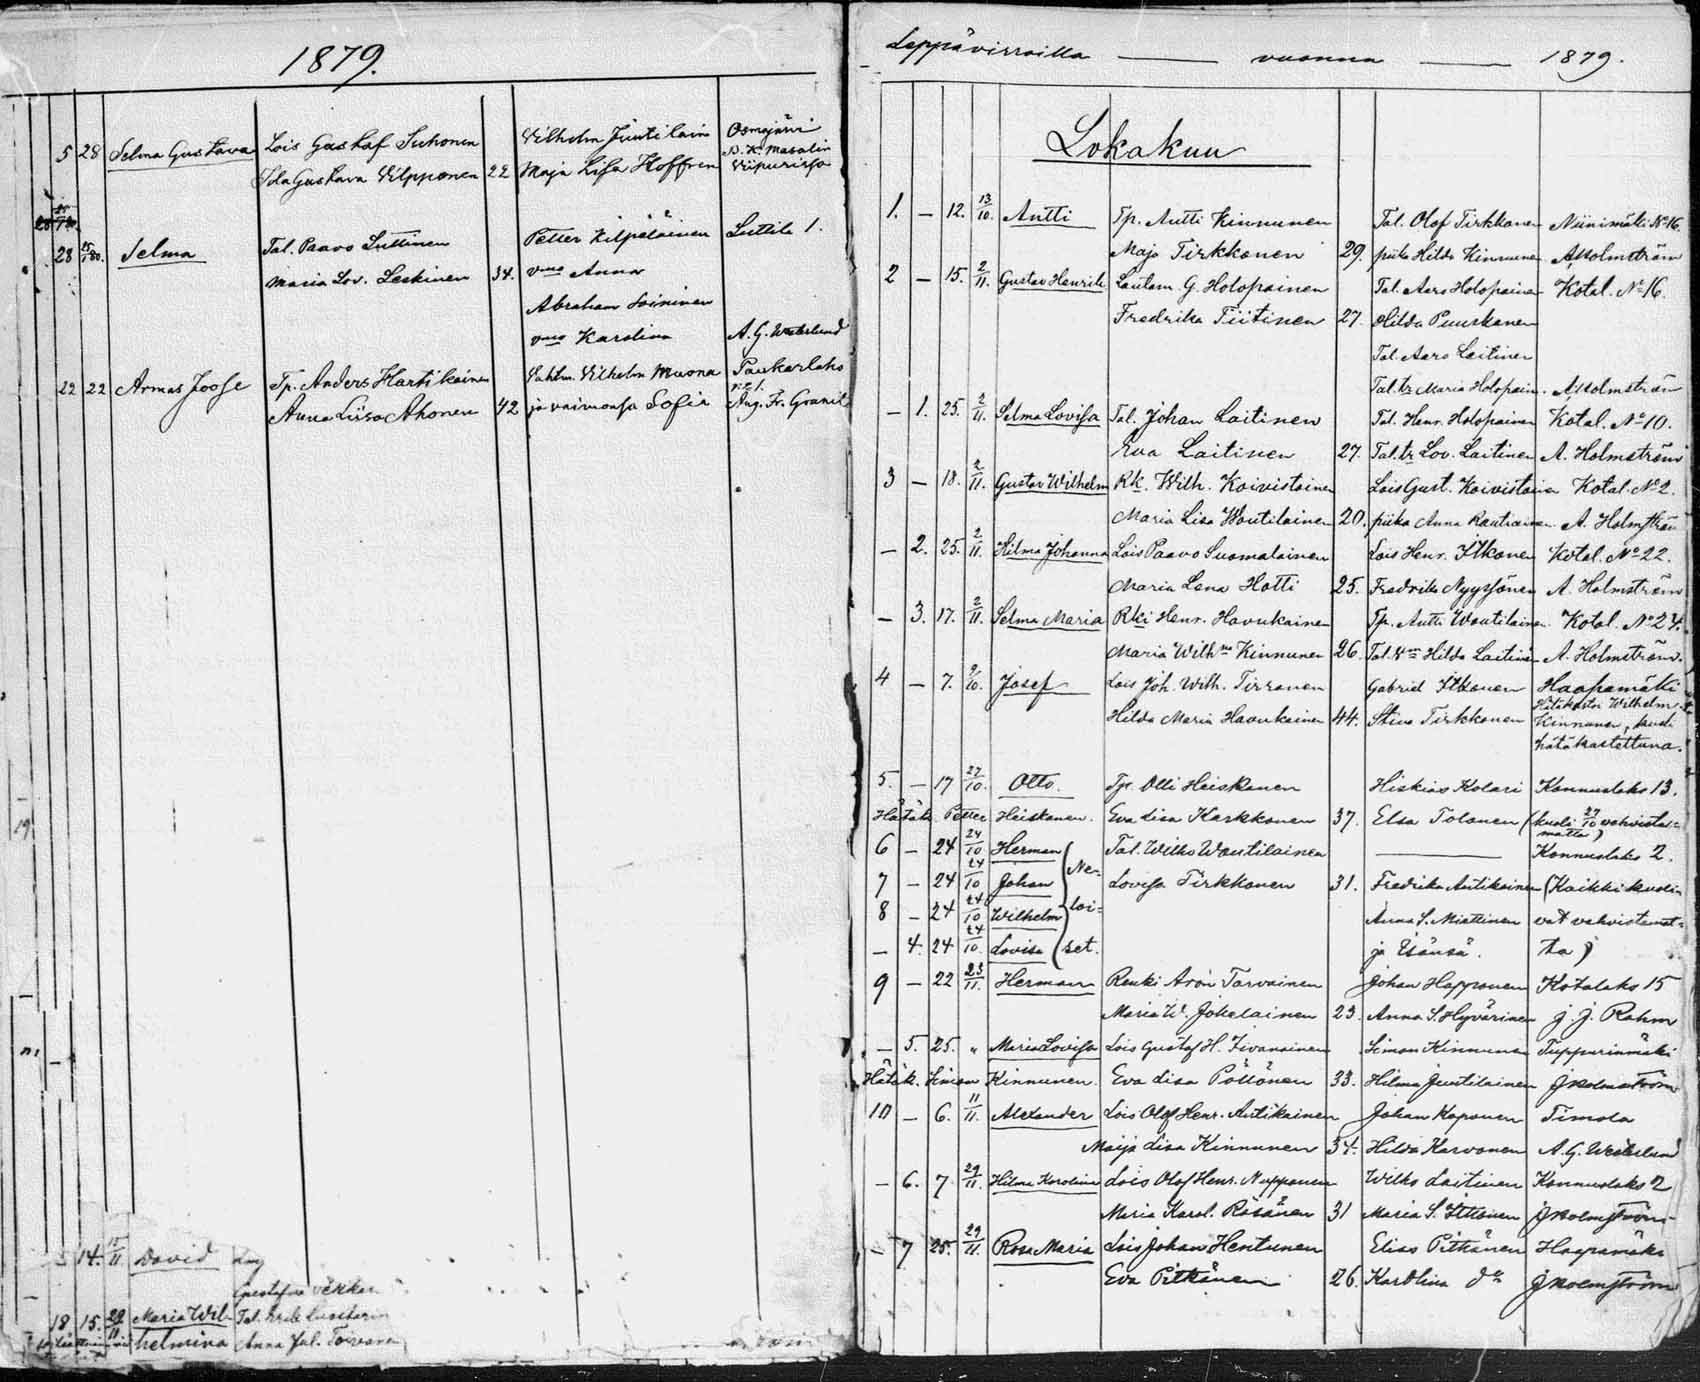 1879.
5 28 Selma Gustava Lois Gustaf Suhonen Vilhelm Juutilain Osmajärvi
D. K. Masalin
Ida Gustava Vilpponen 22 Maja Lisa Hoffren Viipurissa
28 15/1 80. Selma Tal. Paavo Suttinen Petter Kilpeläinen Suttila 1.
Maria Lov. Leskinen 34. vmo Anna
Abraham Soininen
vmo Karolina A. G. Westerlund
22 22 Armas Joose Tp. Anders Hartikainen Vilhelm Muona Paukarlaks
No 1.
Anna Liisa Ahonen 42 ja vaimonsa Sofia Aug. Fr. Granit
14. 15/11 David
Gustafva Vekkar
18 15. 29/11 Maria Wil- Tal. Erik
helmina Anna Jul. Toivanen
Leppävirroilla — vuonna — 1879.
Lokakuu
1. – 12. 13/10. Antti Tp. Antti Kinnunen Tal. Olof Tirkkonen Niinimäki No 16.
Maja Tirkkonen 29. piika Hilda Kinnunen A Holmström
2 – 15. 2/11. Gustav Henrik Lautam. G. Holopainen Tal. Aaro Holopainen Kotal. No 16.
Fredrika Tiitinen 27. Hilda Puurkanen
Tal. Aaro Laitinen
Tal. tr Maria Holopain. A Holmström
– 1. 25. 2/11. Selma Lovisa Tal. Johan Laitinen Tal. Henr. Holopainen Kotal. No 10.
Eva Laitinen 27. Tal. tr Lov. Laitinen A. Holmström
3 – 18. 2/11. Gustav Wilhelm Rk. Wilh. Koivistoinen Lois Gust. Koivistoinen Kotal. No 2.
Maria Lisa Woutilainen 20. piika Anna Rautiainen A. Holmström
– 2. 25. 2/11. Hilma Johanna Lois Paavo Suomalainen Lois Henr. Itkonen Kotal. No 22.
Maria Lena Hotti 25. Fredrika Nyyssönen A. Holmström
– 3. 17. 2/11. Selma Maria Rki Henr. Havukainen Tp. Antti Woutilainen Kotal. No 24.
Maria Wilhna Kinnunen 26. Tal. vmo Hilda Laitinen A. Holmström.
4 – 7. 9/10. Josef Lois Joh. Wilh. Tirronen Gabriel Itkonen Haapamäki
Hilda Maria Havukainen 44. Stina Tirkkonen Hätäkastoi Wilhelm
Kinnunen, kuoli
hätäkastettuna.
5. – 17 27/10. Otto. Tp. Olli Heiskanen Hiskias Kolari Konnuslaks 13.
Hätäk. Petter Heiskanen. Eva Lisa Karkkonen 37. Elsa Tolonen (kuoli 27/10 vahvista=
matta)
6 – 24 24/10 Herman Tal. Wilho Woutilainen — Konnuslaks 2.
7 – 24 24/10 Johan Ne= Lovisa Tirkkonen 31. Fredrika Antikainen (Kaikki kuoli-
8 – 24 24/10 Wilhelm loi= Anna S. Miettinen vat vahvistamat=
– 4. 24 24/10. Lovisa set. ja Isänsä. ta)
9 – 22 23/11. Herman Renki Aron Tarvainen Johan Happonen Kotalaks 15
Maria W. Jokelainen 23. Anna S. Hyvärinen J. J. Rahm
– 5. 25. " Maria Lovisa Lois Gustaf H. Iivanainen Simon Kinnunen Tuppurinmäki
Hätäk. Simon Kinnunen. Eva Lisa Pöllönen 33. Hilma Juutilainen J Holmström
10 – 6. 11/11. Alexander Lois Olof Henr. Antikainen Johan Koponen Timola
Maija Lisa Kinnunen 34. Hilda Karvonen A. G. Westerlund
– 6. 7. 29/11. Hilma Karolina Lois Olof Henr. Nupponen Wilho Laitinen Konnuslaks 2
Maria Karol. Räsänen 31 Maria S. Itkonen J Holmström
– 7 25. 29/11. Rosa Maria Lois Johan Hentunen Elias Pitkänen Haapamäki
Eva Pitkänen 26. Karolina do J Holmström